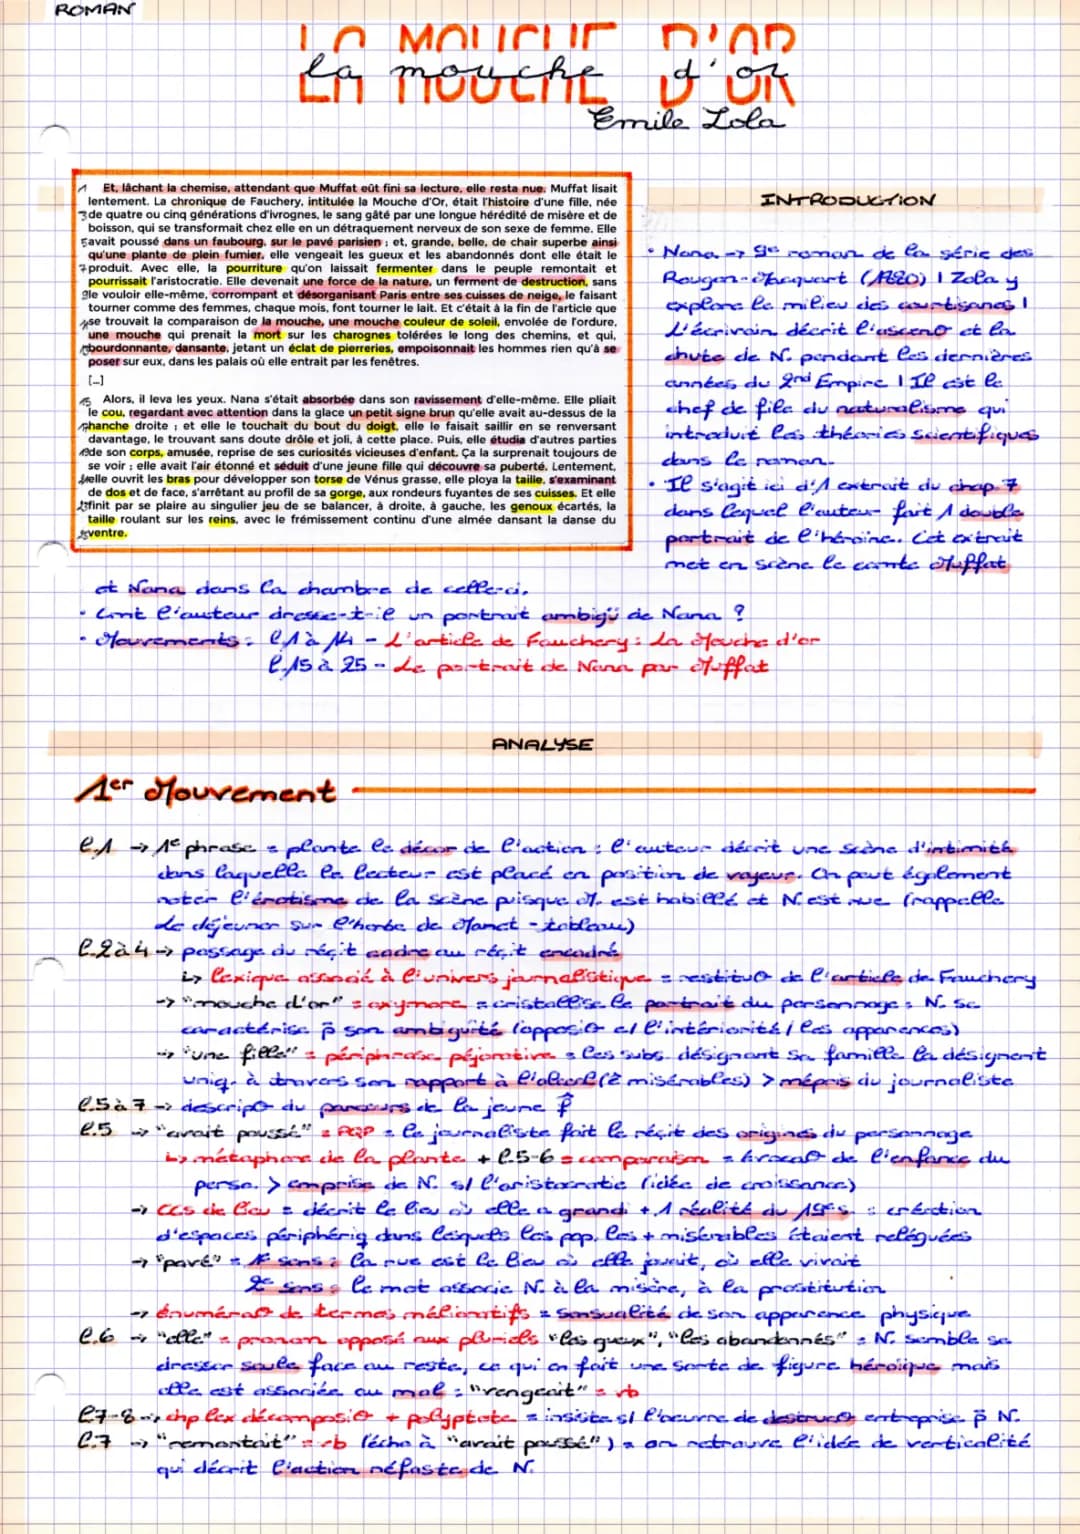 ROMAN
LA MOUCHE D'OR
la mouche d'or
Emile Zola
1 Et, lâchant la chemise, attendant que Muffat eût fini sa lecture, elle resta nue. Muffat lisait
lentement. La chronique de Fauchery, intitulée la Mouche d'Or, était l'histoire d'une fille, née
3 de quatre ou cinq générations d'ivrognes, le sang gâté par une longue hérédité de misère et de
boisson, qui se transformait chez elle en un détraquement nerveux de son sexe de femme. Elle
5 avait poussé dans un faubourg, sur le pavé parisien ; et, grande, belle, de chair superbe ainsi
qu'une plante de plein fumier, elle vengeait les gueux et les abandonnés dont elle était le
7 produit. Avec elle, la pourriture qu'on laissait fermenter dans le peuple remontait et
pourrissait l'aristocratie. Elle devenait une force de la nature, un ferment de destruction, sans
9 le vouloir elle-même, corrompant et désorganisant Paris entre ses cuisses de neige, le faisant
tourner comme des femmes, chaque mois, font tourner le lait. Et c'était à la fin de l'article que
11 se trouvait la comparaison de la mouche, une mouche couleur de soleil, envolée de l'ordure,
une mouche qui prenait la mort sur les charognes tolérées le long des chemins, et qui,
13 bourdonnante, dansante, jetant un éclat de pierreries, empoisonnait les hommes rien qu'à se
poser sur eux, dans les palais où elle entrait par les fenêtres.
[...]
15 Alors, il leva les yeux. Nana s'était absorbée dans son ravissement d'elle-même. Elle pliait
le cou, regardant avec attention dans la glace un petit signe brun qu'elle avait au-dessus de la
17 hanche droite ; et elle le touchait du bout du doigt, elle le faisait saillir en se renversant
davantage, le trouvant sans doute drôle et joli, à cette place. Puis, elle étudia d'autres parties
19 de son corps, amusée, reprise de ses curiosités vicieuses d'enfant. Ça la surprenait toujours de
se voir ; elle avait l'air étonné et séduit d'une jeune fille qui découvre sa puberté. Lentement,
21 elle ouvrit les bras pour développer son torse de Vénus grasse, elle ploya la taille, s'examinant
de dos et de face, s'arrêtant au profil de sa gorge, aux rondeurs fuyantes de ses cuisses. Et elle
23 finit par se plaire au singulier jeu de se balancer, à droite, à gauche, les genoux écartés, la
taille roulant sur les reins, avec le frémissement continu d'une almée dansant la danse du
25 ventre.
INTRODUCTION
• Nana -> 9e roman de la série des
Rougon-Macquart (1880) | Zola y
explore le milieu des courtisanes |
L'écrivain décrit l'ascenø et la
chute de N. pendant les dernières
années du 2nd Empire | Il est le
chef de file du naturalisme qui
introduit les théories scientifiques
dans le roman.
• Il s'agit ici d'1 extrait du chap. 7
dans lequel l'auteur fait 1 double
portrait de l'héroïne. Cet extrait
met en scène le comte Muffat
et Nana dans la chambre de celle-ci.
• Cmt l'auteur dresse-t-il un portrait ambigü de Nana ?
• Mouvements : l.1 à 14 - L'article de Fauchery : La Mouche d'or
l.15 à 25 - Le portrait de Nana par Muffat
ANALYSE
1er Mouvement
l.1 -> 1e phrase = plante le décor de l'action : l'auteur décrit une scène d'intimité
dans laquelle le lecteur est placé en position de voyeur. On peut également
noter l'érotisme de la scène puisque M. est habillé et N. est nue (rappelle
Le déjeuner sur l'herbe de Manet - tableau)
l.2 à 4 -> passage du récit cadre au récit encadré
↳ lexique associé à l'univers journalistique = restituø de l'article de Fauchery
-> "mouche d'or" = oxymore = cristallise le portrait du personnage : N. se
caractérise p̄ son ambiguïté (opposiø e/ l'intériorité / les apparences)
-> "une fille" = périphrase péjorative = les subs. désignant sa famille la désignent
uniq. à travers son rapport à l'alcool (è misérables) > mépris du journaliste
l.5 à 7 -> descripø du parcours de la jeune f̂
l.5 -> "avait poussé" = PQP = le journaliste fait le récit des origines du personnage
↳ métaphore de la plante + l.5-6 = comparaison = évocaø de l'enfance du
perso. > emprise de N. s/ l'aristocratie (idée de croissance)
-> CCs de lieu = décrit le lieu où elle a grandi + 1 réalité du 19e s. : création
d'espaces périphériq dans lesquels les pop. les + misérables étaient reléguées
-> "pavé" = 1e sens : la rue est le lieu où elle jouait, où elle vivrait
2e sens : le mot associe N. à la misère, à la prostitution
-> énuméraø de termes mélioratifs = sensualité de son apparence physique
l.6 -> "elle" = pronom opposé aux pluriels "les gueux", "les abandonnés" = N. semble se
dresser seule face au reste, ce qui en fait une sorte de figure héroïque mais
elle est associée au mal : "vengeait" = vb
l.7-8 -> chp lex décomposiø + polyptote = insiste s/ l'oeuvre de destrucø entreprise p̄ N.
l.7 -> "remontait" = vb (écho à "avait poussé") = on retrouve l'idée de verticalité
qui décrit l'action néfaste de N.